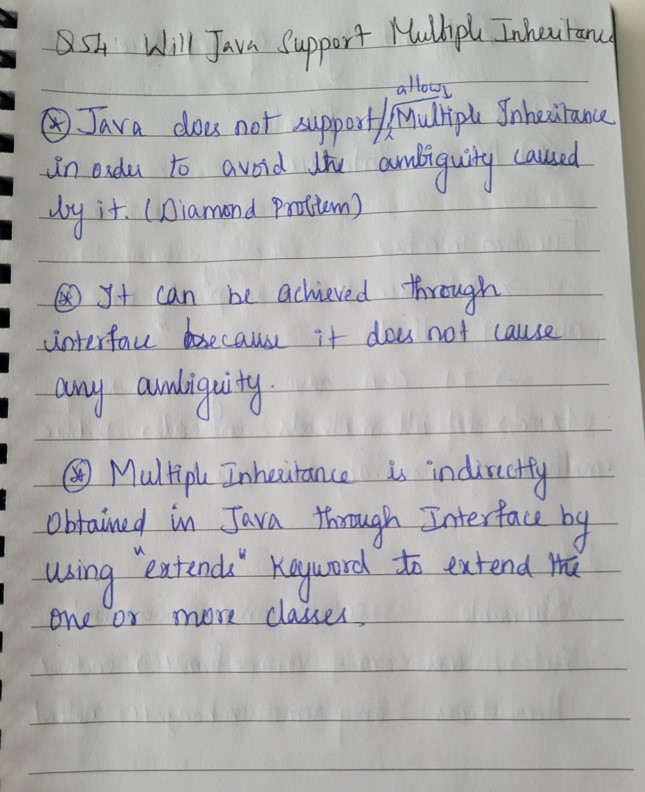 Q54. Will Java Support Multiple Inheritance
allows
⊛ Java does not support/Multiple Inheritance
in order to avoid the ambiguity caused
by it. (Diamond Problem)
⊛ It can be achieved through
interface because it does not cause
any ambiguity.
⊛ Multiple Inheritance is indirectly
Obtained in Java through Interface by
using "extends" Keyword to extend the
one or more classes.